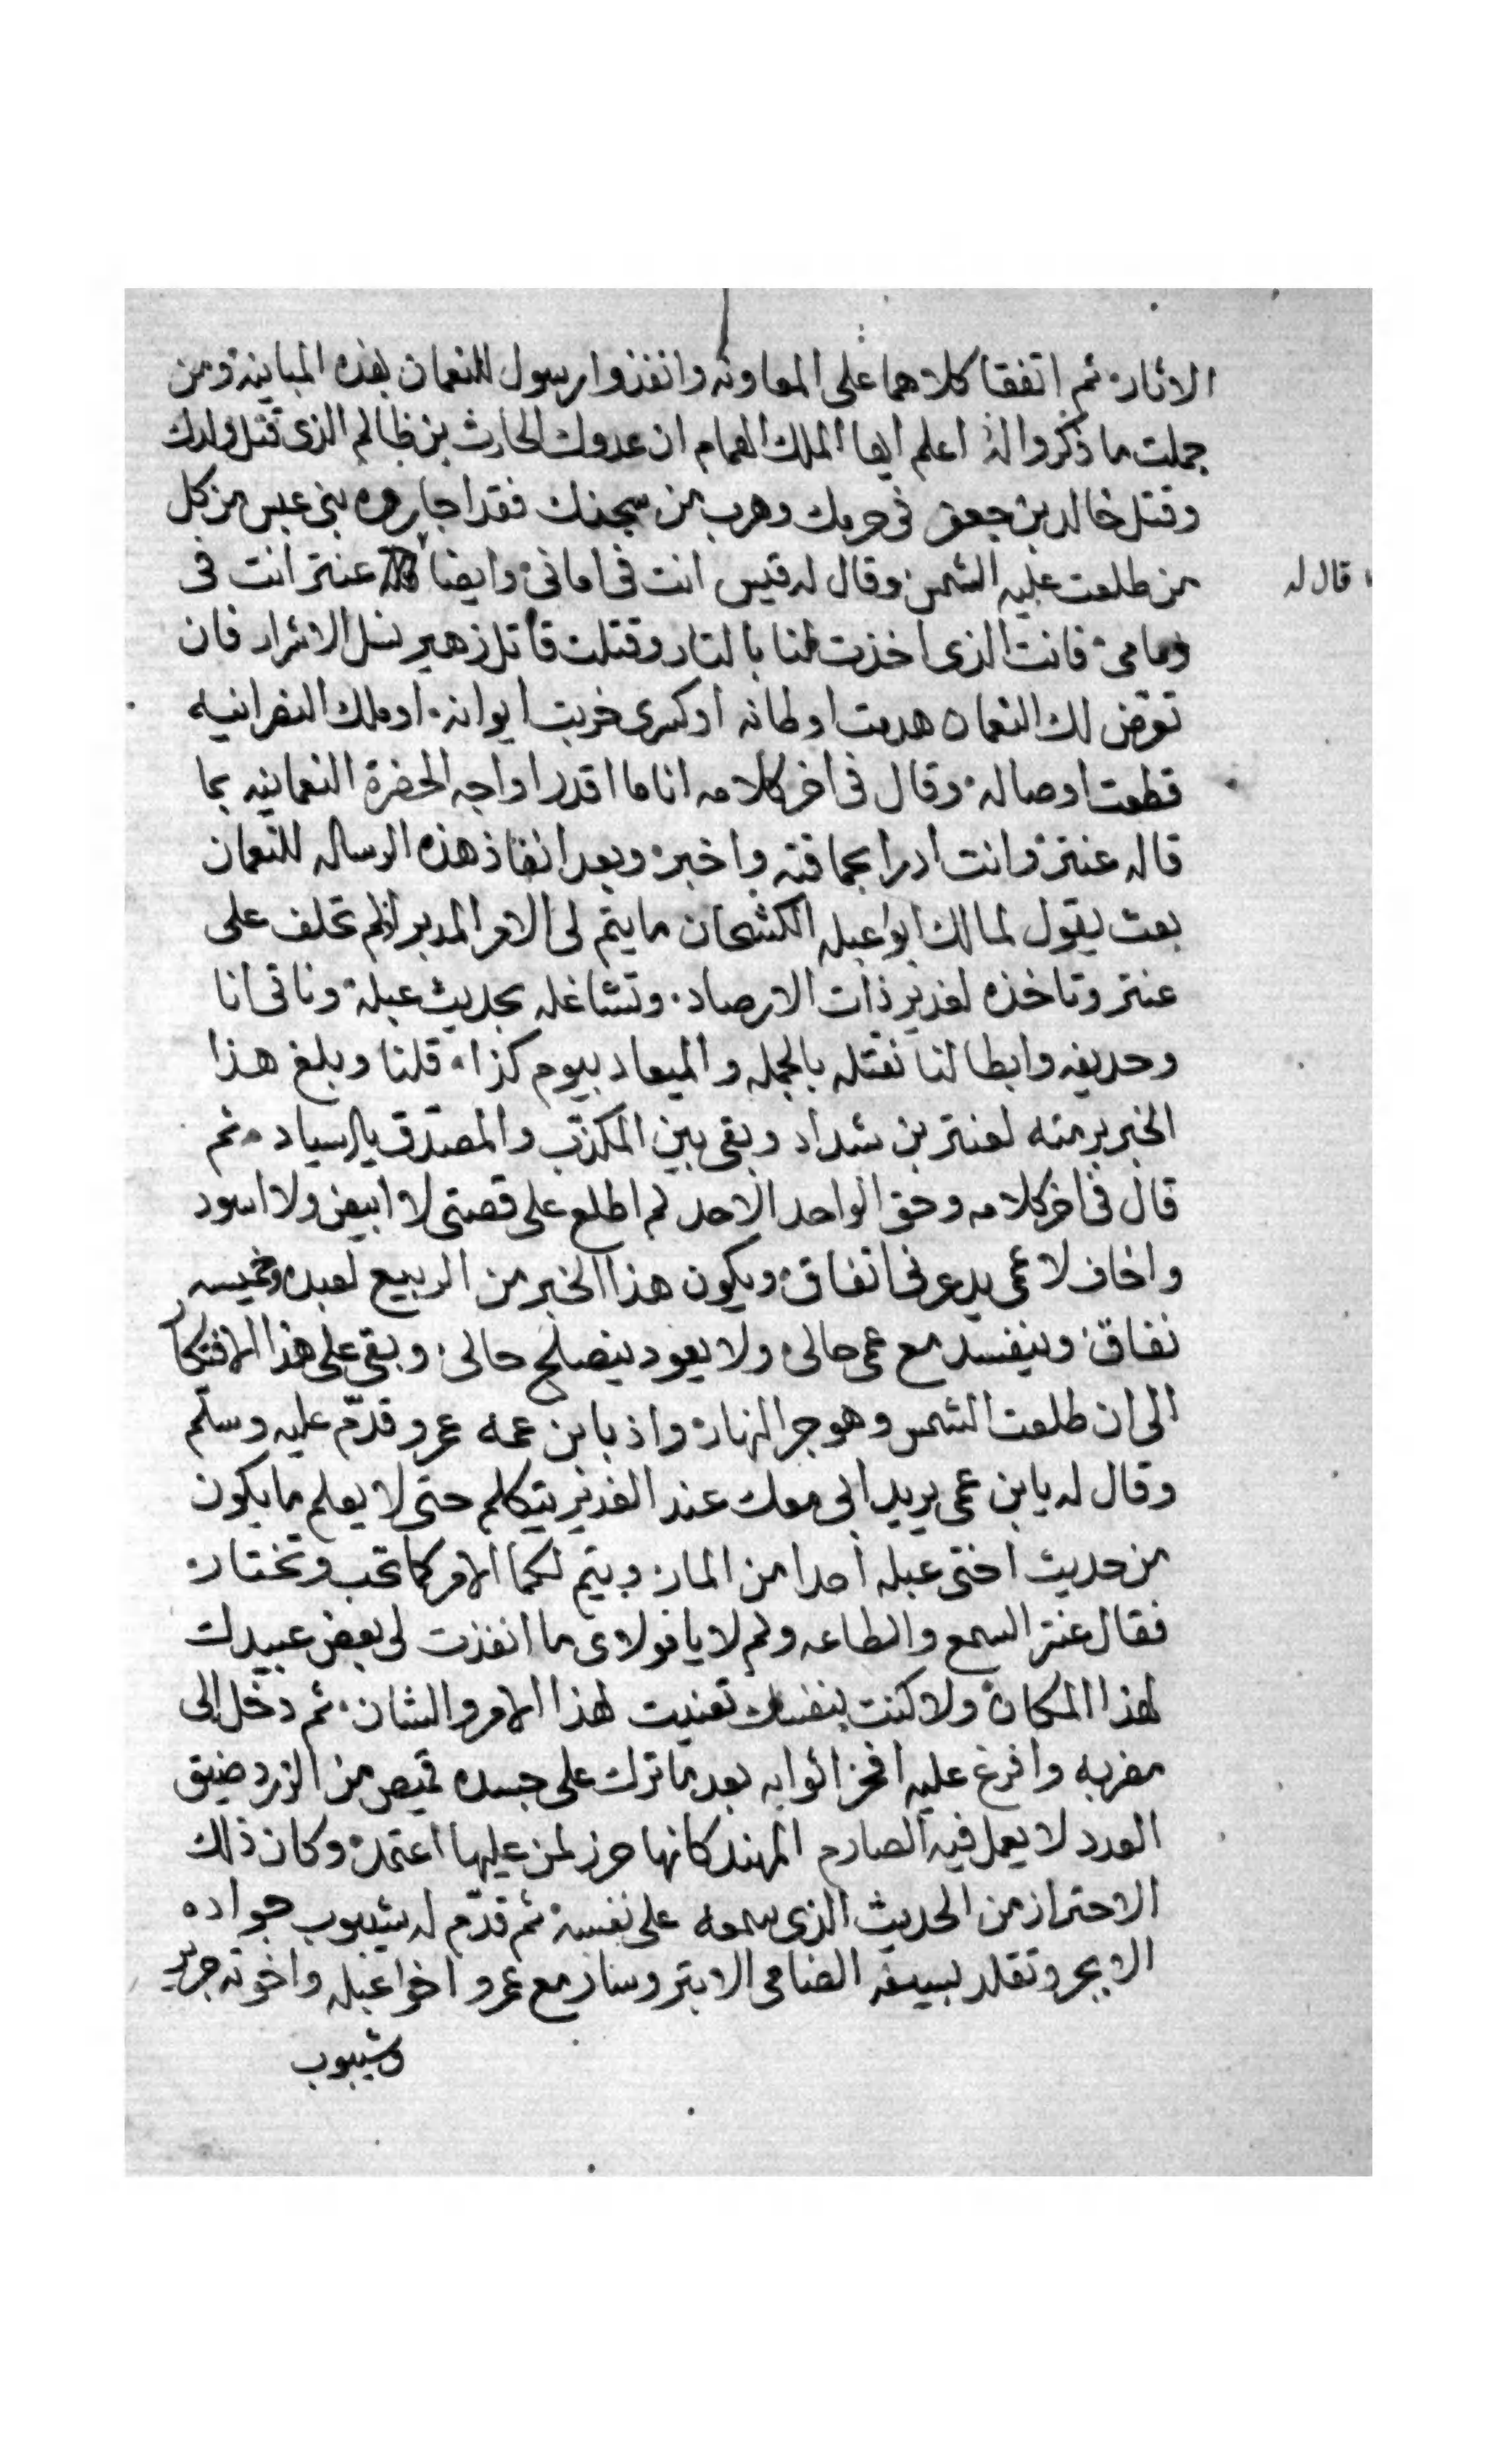 الاثار. ثم اتفقا كلاهما على المعاونه وانفذوا رسول للنعمان بهذه المباينه ومن
جملت ما ذكروا له اعلم ايها الملك الهمام ان عدوك الحارث بن ظالم الذي قتل ولدك
وقتل خالد بن جعفر في حريمك وهرب من سجنك فقد اجاروه بني عبس من كل
من طلعت عليه الشمس وقال له قيس انت في اماني وايضا عنتر انت في
قال له
دمامي فانت الذي اخذت لنا بالتار وقتلت قاتل زهير نسل الاشرار فان
تعرض لك النعمان هدمت اوطانه او كسرى خربت ايوانه. او ملك النصرانيه
قطعت اوصاله. وقال في اخر كلامه انا ما اقدر اواجه الحضرة النعمانيه بما
قاله عنتر وانت ادرا بحماقته واخبر وبعد انفاذ هذه الرساله للنعمان
بعت يقول لمالك ابو عبله الكشحان ما يتم لي الامر المدبر ان لم تحلف على
عنتر وتاخذه لغدير ذات الارصاد. وتشاغله بحديث عبلة وناتي انا
وحديفه وابطالنا نقتله بالجمله والميعاد بيوم كذا. قلنا وبلغ هذا
الخبر برمته لعنتر بن شداد وبقى بين المكذب والمصدق يا سياد. ثم
قال في اخر كلامه وحق الواحد الاحد لم اطلع على قصتي لا ابيض ولا اسود
واخاف لا عمى يدعونى انفاق ويكون هذا الخبر من الربيع لعبده وخميسه
نفاق وينفسد مع عمى حالي ولا يعود ينصلح حالي. وبقى على هذا الافتكار
الى ان طلعت الشمس وهو جر النهار واذ بابن عمه عمرو قدم عليه وسلم
وقال له يابن عمى يريد ابى معك عند الغدير يتكلم حتى لا يعلم ما يكون
من حديث اختي عبله احدا من المار. ويتم لكما الامر كما تحب وتختار.
فقال عنتر السمع والطاعه ولم لا يا مولاى ما انفذت لى بعض عبيدك
لهذا المكان ولا كنت بنفسك تعنيت لهذا الامر والشان. ثم دخل الى
مضربه وافرغ عليه افخر اثوابه بعد ما ترك على جسده قميص من الزرد ضيق
العدد لا يعمل فيه الصارم المهند كانها حرز لمن عليها اعتمد وكان ذلك
الاحتراز من الحديث الذى سمعه على نفسه ثم قدم له شيبوب جواده
الابجر وتقلد بسيفه الضامى الابتر وسار مع عمرو اخوا عبله واخوته جرير
وشيبوب